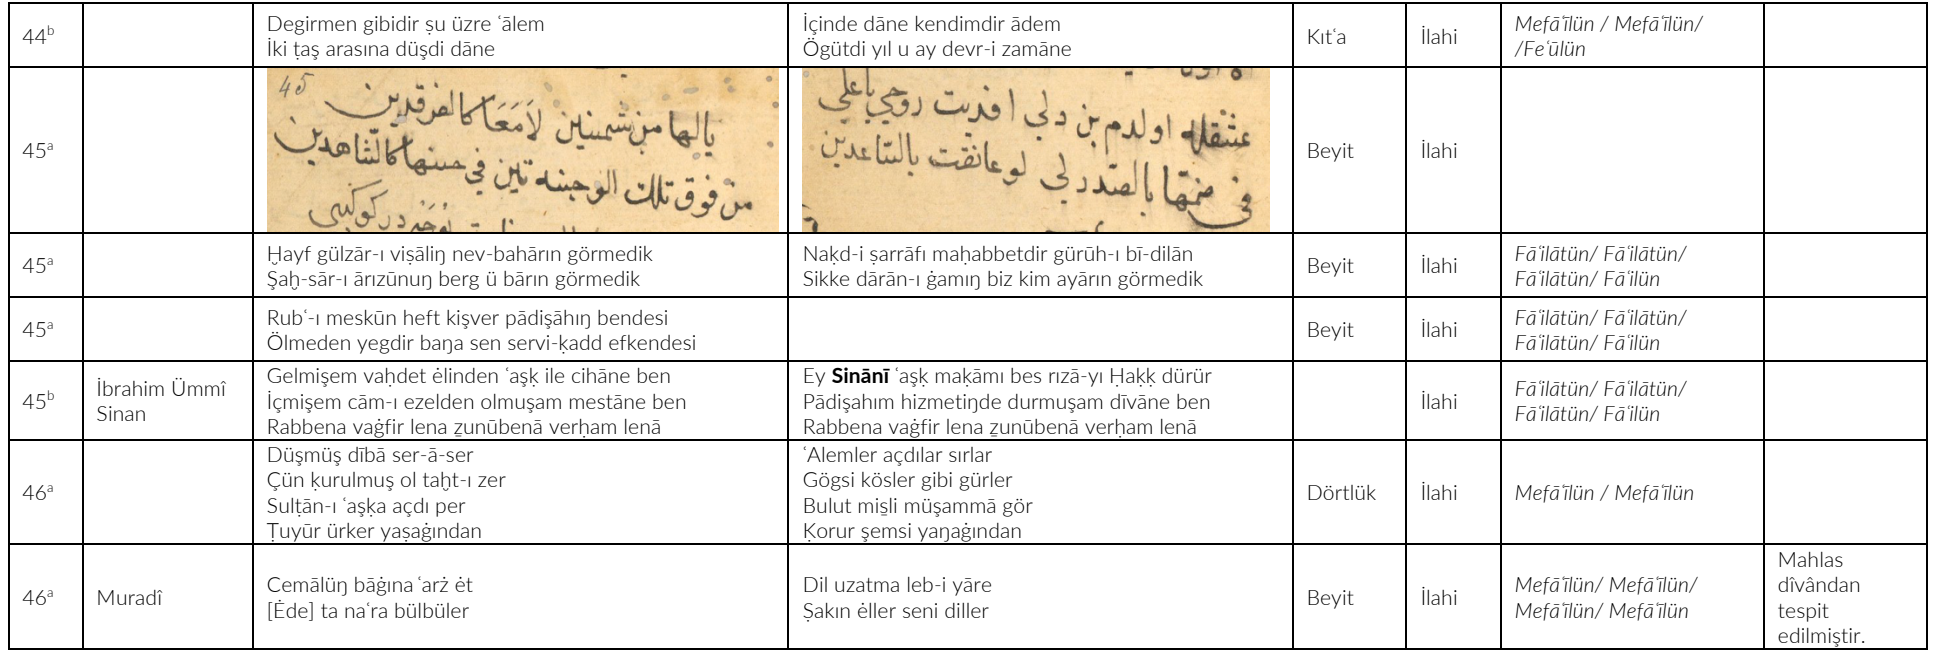 44ᵇ
Degirmen gibidir ṣu üzre ʿālem
İki ṭaş arasına düşdi dāne
İçinde dāne kendimdir ādem
Ögütdi yıl u ay devr-i zamāne
Kıtʿa
İlahi
Mefāʿīlün / Mefāʿīlün/
/Feʿūlün
45ᵃ
45
يالها من شمسين لامعا كالفرقدين
من فوق تلك الوجنه تين في حسنها كالشاهدين
عشقله اولدم بن دلي افديت روحي ياعلي
في ضمها بالصدر لي لو عانقت بالساعدين
Beyit
İlahi
45ᵃ
Ḫayf gülzār-ı viṣāliŋ nev-bahārın görmedik
Şaḫ-sār-ı ārızūnuŋ berg ü bārın görmedik
Naḳd-i ṣarrāfı maḥabbetdir gürūh-ı bī-dilān
Sikke dārān-ı ġamıŋ biz kim ayārın görmedik
Beyit
İlahi
Fāʿilātün/ Fāʿilātün/
Fāʿilātün/ Fāʿilün
45ᵃ
Rubʿ-ı meskūn heft kişver pādişāhıŋ bendesi
Ölmeden yegdir baŋa sen servi-ḳadd efkendesi
Beyit
İlahi
Fāʿilātün/ Fāʿilātün/
Fāʿilātün/ Fāʿilün
45ᵇ
İbrahim Ümmî
Sinan
Gelmişem vaḥdet ėlinden ʿaşḳ ile cihāne ben
İçmişem cām-ı ezelden olmuşam mestāne ben
Rabbena vaġfir lena ẕunūbenā verḥam lenā
Ey Sinānī ʿaşḳ maḳāmı bes rızā-yı Ḥaḳḳ dürür
Pādişahım hizmetiŋde durmuşam dīvāne ben
Rabbena vaġfir lena ẕunūbenā verḥam lenā
İlahi
Fāʿilātün/ Fāʿilātün/
Fāʿilātün/ Fāʿilün
46ᵃ
Düşmüş dībā ser-ā-ser
Çün ḳurulmuş ol taḫt-ı zer
Sulṭān-ı ʿaşḳa açdı per
Ṭuyūr ürker yaṣaġından
ʿAlemler açdılar sırlar
Gögsi kösler gibi gürler
Bulut mis̱li müşammā gör
Ḳorur şemsi yaŋaġından
Dörtlük
İlahi
Mefāʿīlün / Mefāʿīlün
46ᵃ
Muradî
Cemālüŋ bāġına ʿarż ėt
[Ėde] ta naʿra bülbüler
Dil uzatma leb-i yāre
Ṣakın ėller seni diller
Beyit
İlahi
Mefāʿīlün/ Mefāʿīlün/
Mefāʿīlün/ Mefāʿīlün
Mahlas
dîvândan
tespit
edilmiştir.